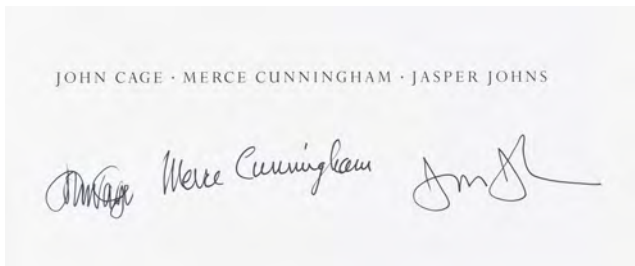 JOHN CAGE · MERCE CUNNINGHAM · JASPER JOHNS
John Cage Merce Cunningham J Johns